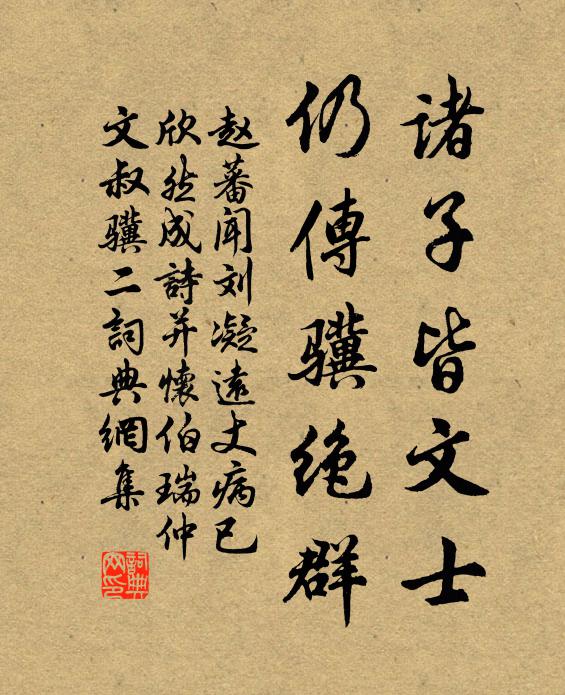 诸子皆文士
仍傳骥绝群
赵蕃闻刘凝遠丈病已
欣然成詩并懷伯瑞仲
文叔骥二詞典網集
詞典网印